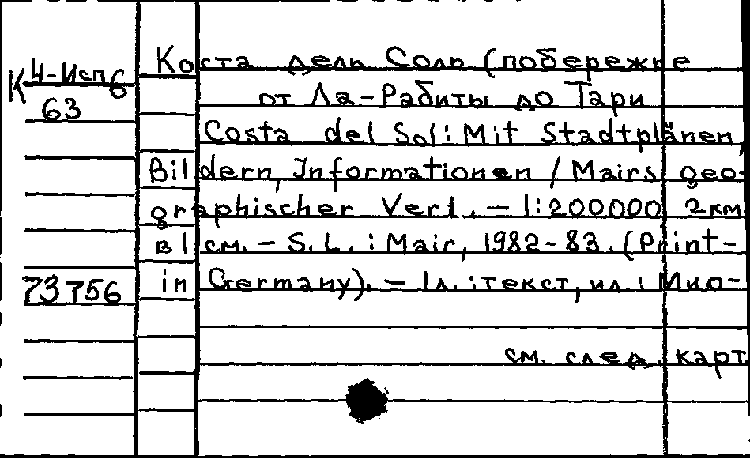 К 4-Исп6
63
Коста дель Соль (побережье
от Ла-Рабиты до Тари
Costa del Sol: Mit Stadtplänen,
Bildern, Informationen / Mairs geo-
graphischer Verl. – 1:200000, 2км
в 1 см. – S. L. : Mair, 1982-83. (Print-
73756
in Germany). – 1л. : текст, ил. ;
см. след. карт